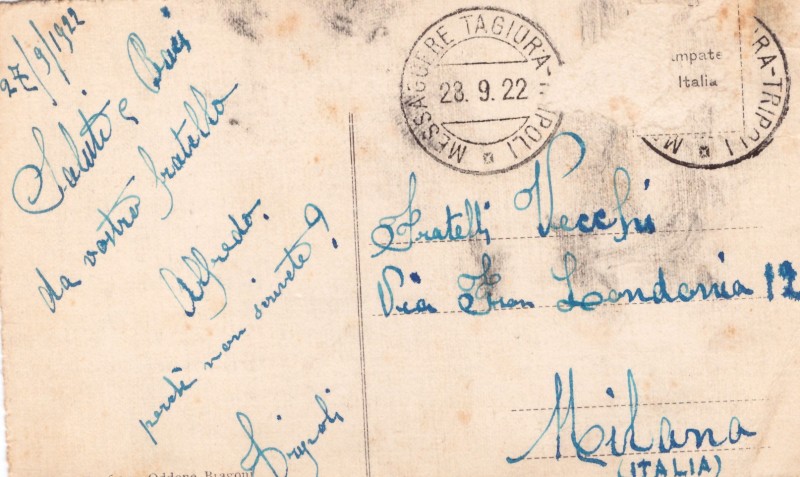 27/9/1922
Saluti e Baci
da vostro fratello
Alfredo.
perchè non scrivete?
Tripoli
Oddone Bragoni
MESSAGGERE TAGIURA-TRIPOLI
28.9.22
RA-TRIPOLI M
mpate
Italia
Fratelli Vecchi
Via Fran Londonia 12
Milana
(ITALIA)